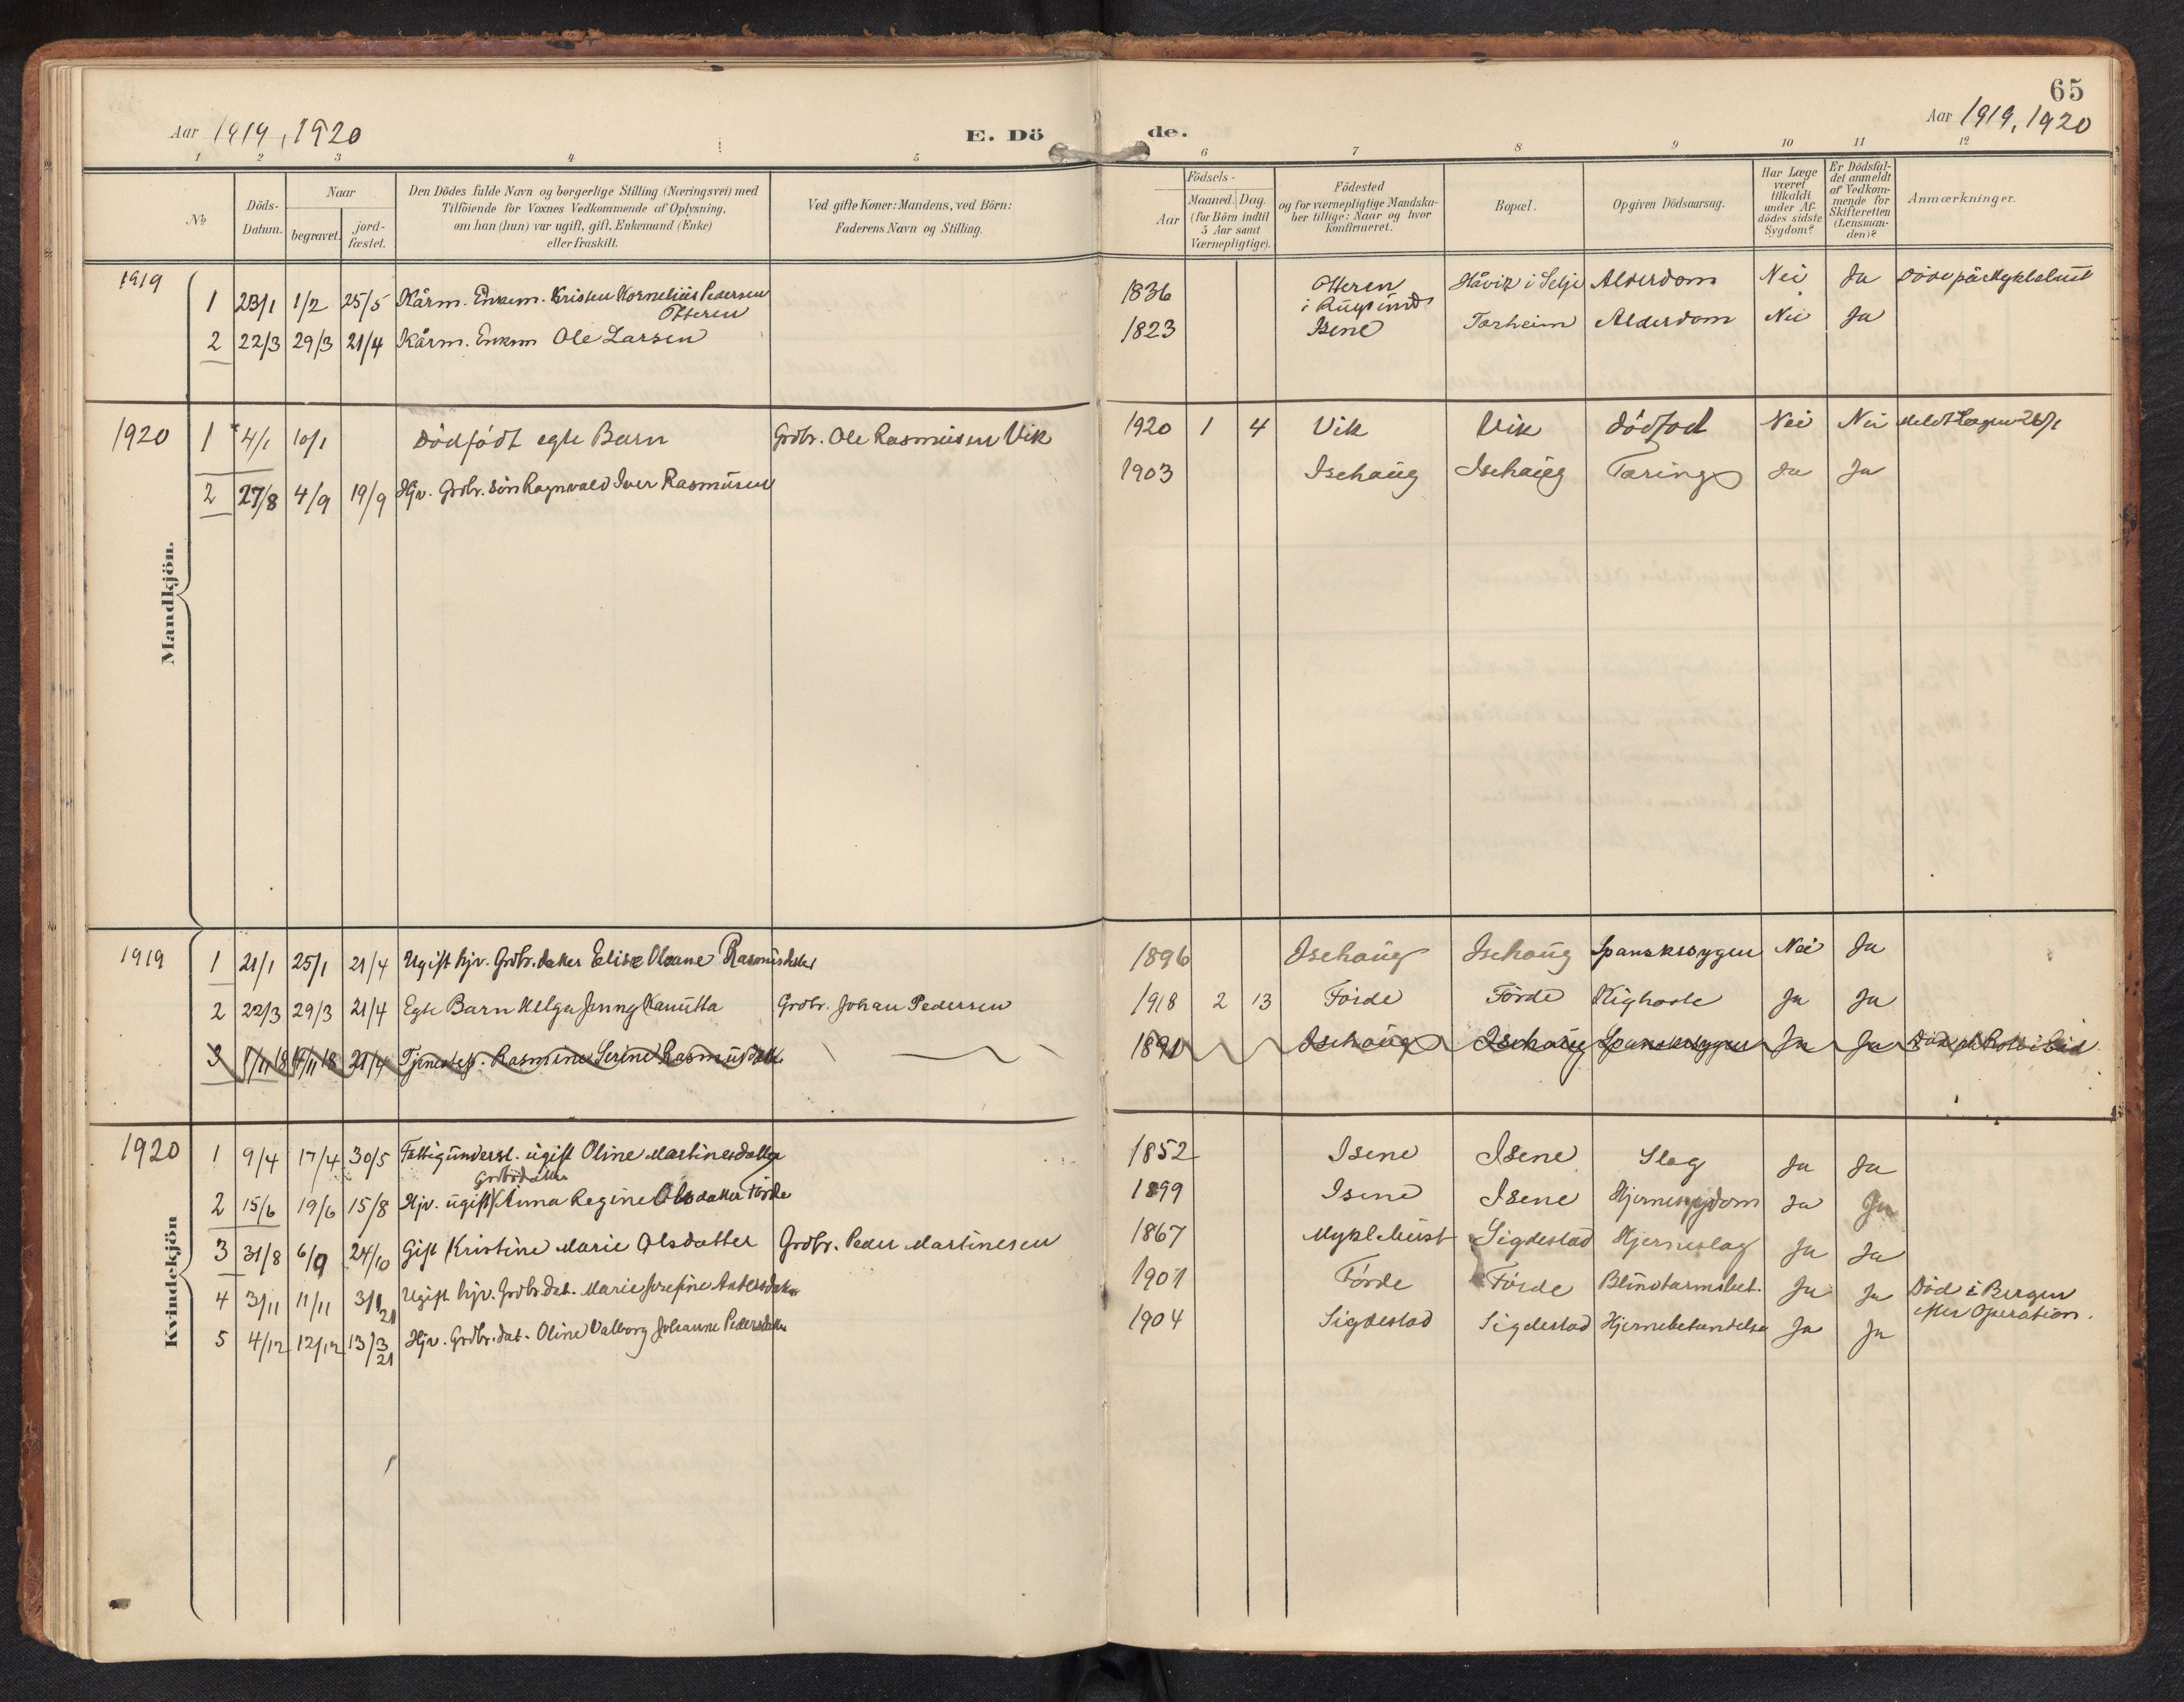 65
Aar 1919, 1920
E. Döde.
Aar 1919, 1920
1 2 3 4 5 6 7 8 9 10 11 12
No
Döds-Datum.
Naar
begravet.
jord-fæstet.
Den Dödes fulde Navn og borgerlige Stilling (Næringsvei) med
Tilföiende for Voxnes Vedkommende af Oplysning.
om han (hun) var ugift, gift, Enkemand (Enke)
eller fraskilt.
Ved gifte Koner: Mandens, ved Börn:
Faderens Navn og Stilling.
Födsels-
Aar
Maaned. Dag.
(for Börn indtil
5 Aar samt
Værnepligtige).
Födested
og for værnepligtige Mandska-
ber tillige: Naar og hvor
konfirmeret.
Bopæl.
Opgiven Dödsaarsag.
Har Læge
været
tilkaldt
under Af-
dödes sidste
Sygdom?
Er Dödsfal-
det anmeldt
af Vedkom-
mende for
Skifteretten
(Lensman-
den)?
Anmærkninger.
Mandkjön.
1919
1 23/1 1/2 25/5 Kårm. Enkem. Kristen Kornelius Pedersen Otteren 1836 Otteren i Rugsund Håvik i Selje Alderdom Nei Ja Döde på Myklebust
2 22/3 29/3 21/4 Kårm. Enkem Ole Larsen 1823 Isene Torheim Alderdom Nei Ja
1920
1 4/1 10/1 Dödfödt egte Barn Grdbr. Ole Rasmusen Vik 1920 1 4 Vik Vik dödfød Nei Nei Meldt Lægen 26/1
2 27/8 4/9 19/9 Hjv. Grdbr. sön Ragnvald Iver Rasmusen 1903 Isehaug Isehaug Tæring Ja Ja
Kvindekjön
1919
1 21/1 25/1 21/4 Ugift hjv. Grdbr. datter Elise Oleane Rasmusdatter 1896 Isehaug Isehaug Spansksygen Nei Ja
2 22/3 29/3 21/4 Egte Barn Helga Jenny Kanutta Grdbr. Johan Pedersen 1918 2 13 Förde Förde Kighoste Ja Ja
3 7/11 18 21/4 Tjenestep. Rasmine Serine Rasmusdatt 1891 Isehaug Isehaug Spansksygen Ja Ja
1920
1 9/4 17/4 30/5 Fattigunderst. ugift Oline Martinesdatter 1852 Isene Isene Slag Ja Ja
2 15/6 19/6 15/8 Hjv. ugift Grdbrdatter Anna Regine Olsdatter Förde 1899 Isene Isene Hjernesygdom Ja Ja
3 31/8 6/9 24/10 Gift Kristine Marie Olsdatter Grdbr. Peder Martinesen 1867 Myklebust Sigdestad Hjerneslag Ja Ja
4 3/11 11/11 3/1 21 Ugift hjv. Grdbr. dat. Marie Josefine Antonsdatter 1901 Förde Förde Blindtarmsbet. Ja Ja Död i Bergen efter Operation.
5 4/12 12/12 13/3 21 Hjv. Grdbr. dat. Oline Valborg Johanne Pedersdatter 1904 Sigdestad Sigdestad Hjernebetændelse Ja Ja